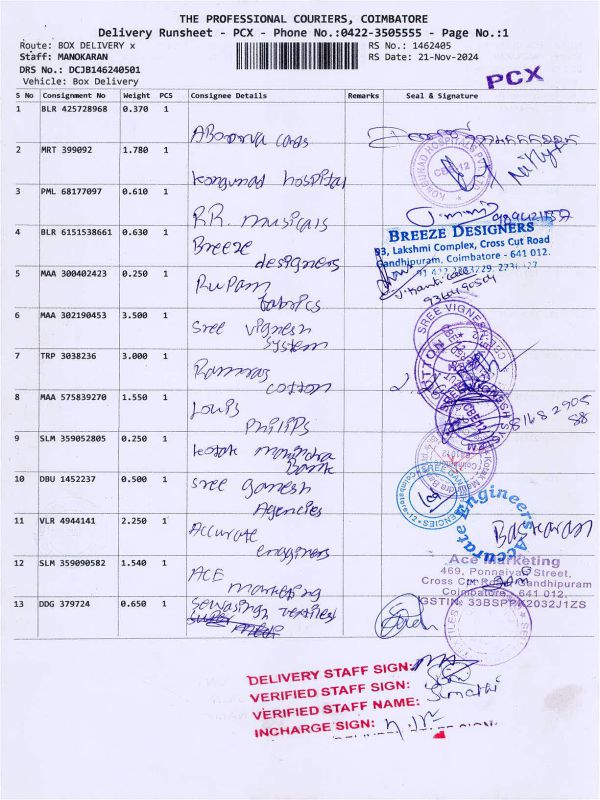 THE PROFESSIONAL COURIERS, COIMBATORE
Delivery Runsheet - PCX - Phone No.:0422-3505555 - Page No.:1
Route: BOX DELIVERY x RS No.: 1462405
Staff: MANOKARAN RS Date: 21-Nov-2024
DRS No.: DCJB146240501
Vehicle: Box Delivery
PCX
S No Consignment No Weight PCS Consignee Details Remarks Seal & Signature
1 BLR 425728968 0.370 1
cards
2 MRT 399092 1.780 1
kongunad hospital
KONGUNAD HOSPITALS PVT LTD
CBE-12
3 PML 68177097 0.610 1
RR. musicals
4 BLR 6151538661 0.630 1
Breeze designers
BREEZE DESIGNERS
93, Lakshmi Complex, Cross Cut Road
Gandhipuram, Coimbatore - 641 012.
5 MAA 300402423 0.250 1
Rupam fabrics
9364190504
6 MAA 302190453 3.500 1
Sree vignesh system
SREE VIGNESH
7 TRP 3038236 3.000 1
Ramraj cotton
8 MAA 575839270 1.550 1
Louis Philips
81682905
88
9 SLM 359052805 0.250 1
kotak mahindra Bank
10 DBU 1452237 0.500 1
Sree ganesh Agencies
SREE GANESH AGENCIES
Coimbatore-12
11 VLR 4944141 2.250 1
Accurate enginers
Accurate Engineers
Baskaran
12 SLM 359090582 1.540 1
ACE marketing
Ace Marketing
469, Ponnaiyan Street,
Cross Cut Road, Gandhipuram
Coimbatore, 641 012
13 DDG 379724 0.650 1
DELIVERY STAFF SIGN:
VERIFIED STAFF SIGN:
VERIFIED STAFF NAME: Sumathi
INCHARGE SIGN: